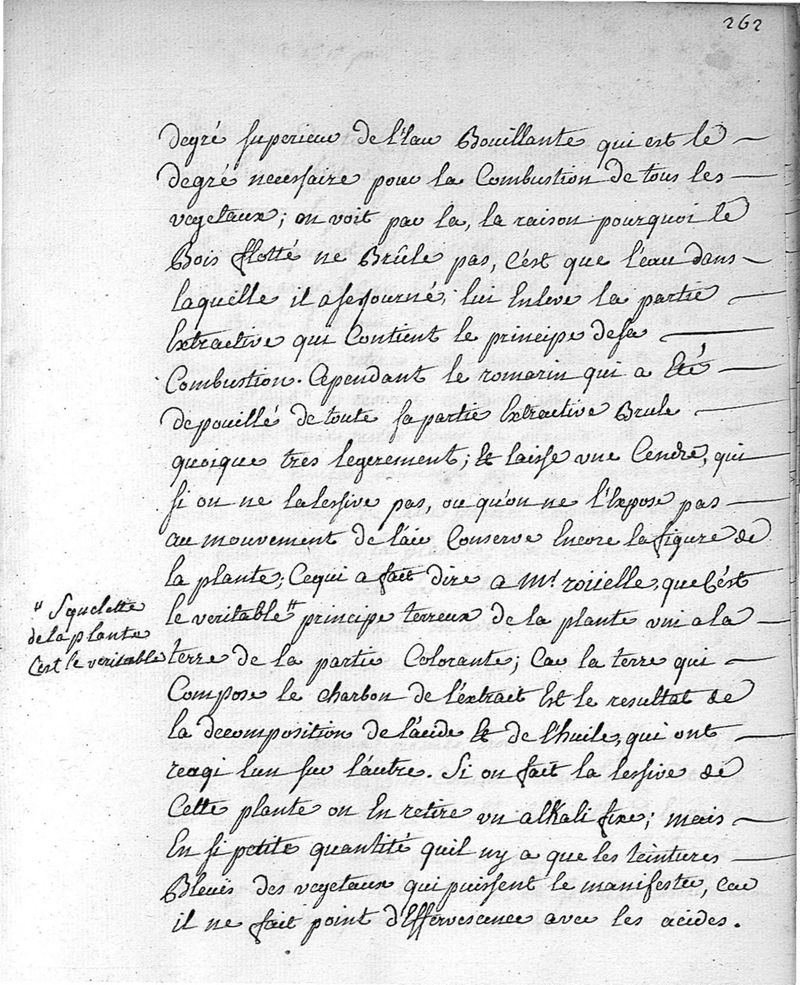 262
degré superieur de l'Eau Bouillante qui est le
degré necessaire pour la Combustion de tous les
vegetaux; on voit par la, la raison pourquoi le
Bois flotté ne Brûle pas, C'est que l'eau dans
laquelle il a sejourné, lui Enleve la partie
Extractive qui Contient le principe de sa
Combustion. Cependant le romarin qui a Eté
depouillé de toute sa partie Extractive Brule
quoique tres legerement; Et laisse une Cendre, qui
si on ne la lessive pas, ou qu'on ne l'Expose pas
au mouvement de l'air Conserve Encore la figure de
la plante; Cequi a fait dire a Mr. roüelle, que C'est
le veritable " principe terreux de la plante uni a la
" Squelette
de la plante
C'est le veritable
terre de la partie Colorante; Car la terre qui
Compose le charbon de l'extrait Est le resultat de
la decomposition de l'acide Et de l'huile, qui ont
reagi l'un sur l'autre. Si on fait la lessive de
Cette plante on En retire un alkali fixe; mais
En si petite quantité quil ny a que les teintures
Bleuës des vegetaux qui puissent le manifester, Car
il ne fait point d'Effervescence avec les acides.